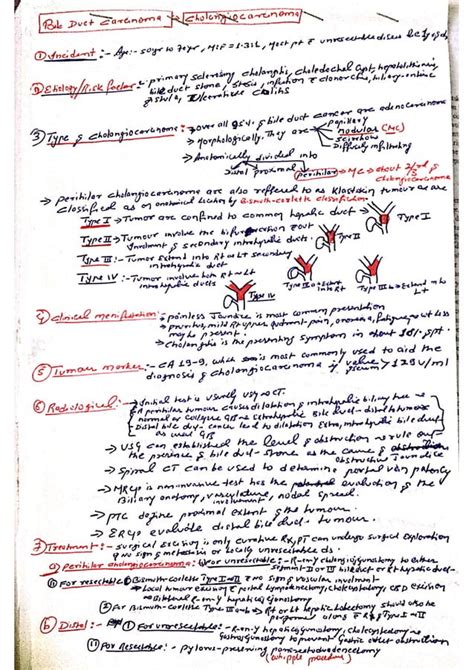 Bile Duct Carcinoma → Cholangiocarcinoma
① Incident :- Age:- 50yr to 70yr, M:F = 1.3:1, Most pt unresectable disease
② Etiology/Risk factor :- primary sclerosing cholangitis, choledochal cyst, hepatolithiasis,
bile duct stone, stasis, infection clonorchis, biliary-enteric
fistula, Ulcerative Colitis
③ Type of Cholangiocarcinoma :- over all 95% of bile duct cancer are adenocarcinoma
→ Morphologically. They are papillary
nodular (MC)
scirrhous
Diffusely infiltrating
→ Anatomically divided into
Distal proximal perihilar → MC - about 2/3rd of
cholangiocarcinoma
→ perihilar cholangiocarcinoma are also reffered to as Klatskin tumour are
classified as on anatomical location by Bismuth-corlette classification
Type I → Tumor are confined to common hepatic duct
Type I
Type II → Tumour involve the bifurcation
involment of secondary intrahepatic duct
Type II
Type III :- Tumor Extent into Rt or Lt secondary
intrahepatic duct
Type IV :- Tumor involve both Rt or Lt
intrahepatic ducts
Type IV
Type IIIa = Extent
into Rt
Type IIIb → Extent into
Lt
④ Clinical menifistation :- painless Jaundice is most common presentation
→ pruritus, mild Rt upper quadrant pain, anorexia, fatigue, wt loss
may be present.
→ Cholangitis is the presenting symptom in about 10% pt.
⑤ Tumour marker :- CA 19-9, which is most commonly used to aid the
diagnosis of cholangiocarcinoma if value > 129 U/ml
⑥ Radiological :- → Initial test is usually USG or CT.
A perihilar tumour causes dilatation of intrahepatic biliary tree
normal or collapse GB Extrahepatic Bile duct - distal tumour
Distal bile duct cancer lead to dilatation Extra, intrahepatic bile duct
as well GB
→ USG can established the level of obstruction rule out
the presence of bile duct stone as the cause of
obstructive Jaundice
→ Spiral CT can be used to determine portal vein patency
→ MRCP is non-invasive test has the evaluation of the
Biliary anatomy, vasculature involvment, nodal spread.
→ PTC define proximal extent of the tumour.
→ ERCP evaluate distal bile duct tumour.
⑦ Treatment :- surgical excision is only curative Rx, PT can undergo surgical exploration
no sign of metastasis or locally unresectable ds.
ⓐ perihilar cholangiocarcinoma :- For unresectable :- R-en-y cholangiojejunostomy to either
segment II or III bileduct or Rt hepatic duct
For resectable :- Bismuth-corlette Type I or II no sign of vascular involment
→ Local tumour excision portal lymphadenectomy, cholecystectomy, CBD excision
Bilateral R-en-y hepaticojejunostomy
For Bismuth-corlette Type III → Rt or Lt hepatic lobectomy should also be
performed along Type I or II
ⓑ Distal :- For unresectable :- R-en-y hepaticojejunostomy, cholecystectomy
gastrojejunostomy to prevent gastric outlet obstruction
For resectable :- pylorus-preserving pancreatoduodenectomy
(whipple procedure)